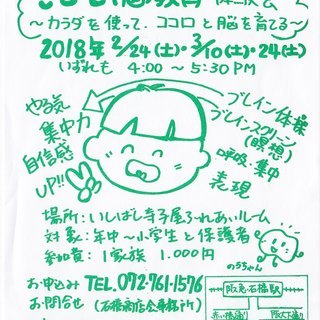 脳教育
～カラダを使って、ココロと脳を育てる～
2018年 2/24(土)・3/10(土)・24(土)
いずれも 4:00～5:30PM
やる気
集中力
自信感
UP!!
ブレイン体操
ブレインスクリーン
(瞑想)
呼吸・集中
表現
場所：いしばし寺子屋ふれあいルーム
対象：年中～小学生と保護者
参加費：1家族 1.000円
のうちゃん
お申込み TEL.072-761-1576
お問合せ (石橋商店会事務所)
阪急石橋駅
赤い橋通り
阪大下通り